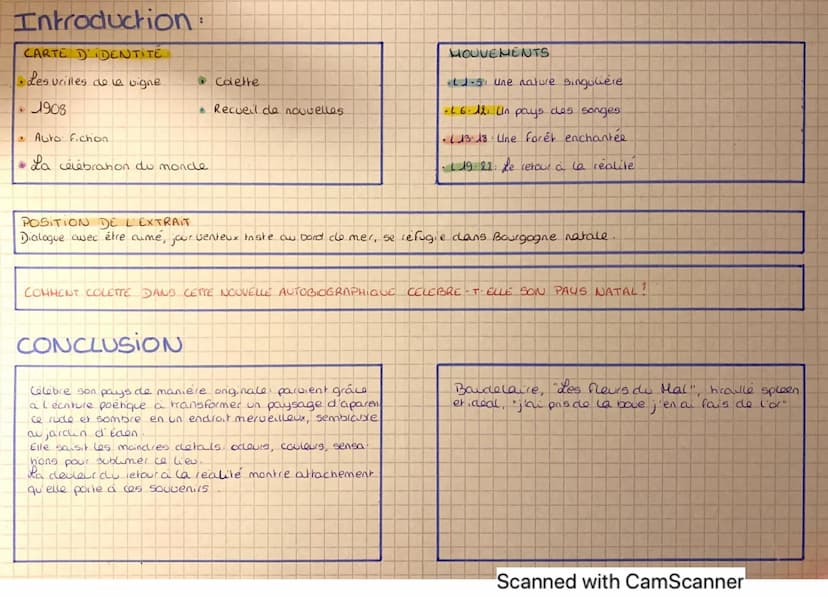 Introduction :
CARTE D'IDENTITÉ
• Les vrilles de la vigne
• Colette
• 1908
• Recueil de nouvelles
• Auto-fiction
• La célébration du monde
MOUVEMENTS
• L1-5: Une nature singulière
• L 6-12: Un pays des songes
• L13-18: Une Forêt enchantée
• L 19-22: Le retour à la réalité
POSITION DE L'EXTRAIT
Dialogue avec être aimé, jour venteux triste au bord de mer, se réfugie dans Bourgogne natale.
COMMENT COLETTE DANS CETTE NOUVELLE AUTOBIOGRAPHIQUE CÉLÈBRE-T-ELLE SON PAYS NATAL?
CONCLUSION
Célèbre son pays de manière originale: parvient grâce
à l'écriture poétique à transformer un paysage d'aparen
ce rude et sombre en un endroit merveilleux, semblable
au jardin d'Eden.
Elle saisit les moindres détails: odeurs, couleurs, sensa-
tions pour sublimer ce lieu.
La douleur du retour à la réalité montre attachement
qu'elle porte à ces souvenirs.
Baudelaire, "Les fleurs du Mal", tiraillé spleen
et idéal, "j'ai pris de la boue j'en ai fais de l'or"
Scanned with CamScanner